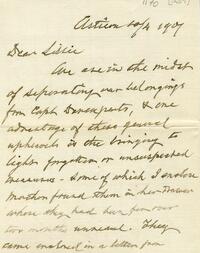 1170
Astoria 10/4 1907
Dear Lillie
We are in the midst
of separating our belongings
from Capt Davenports, & one
advantage of these general
upheavals is the bringing to
light forgotten or unsuspected
treasures - Some of which I enclose
Mother found them in her drawer
where they had been for over
two months unread. They
came enclosed in a letter from